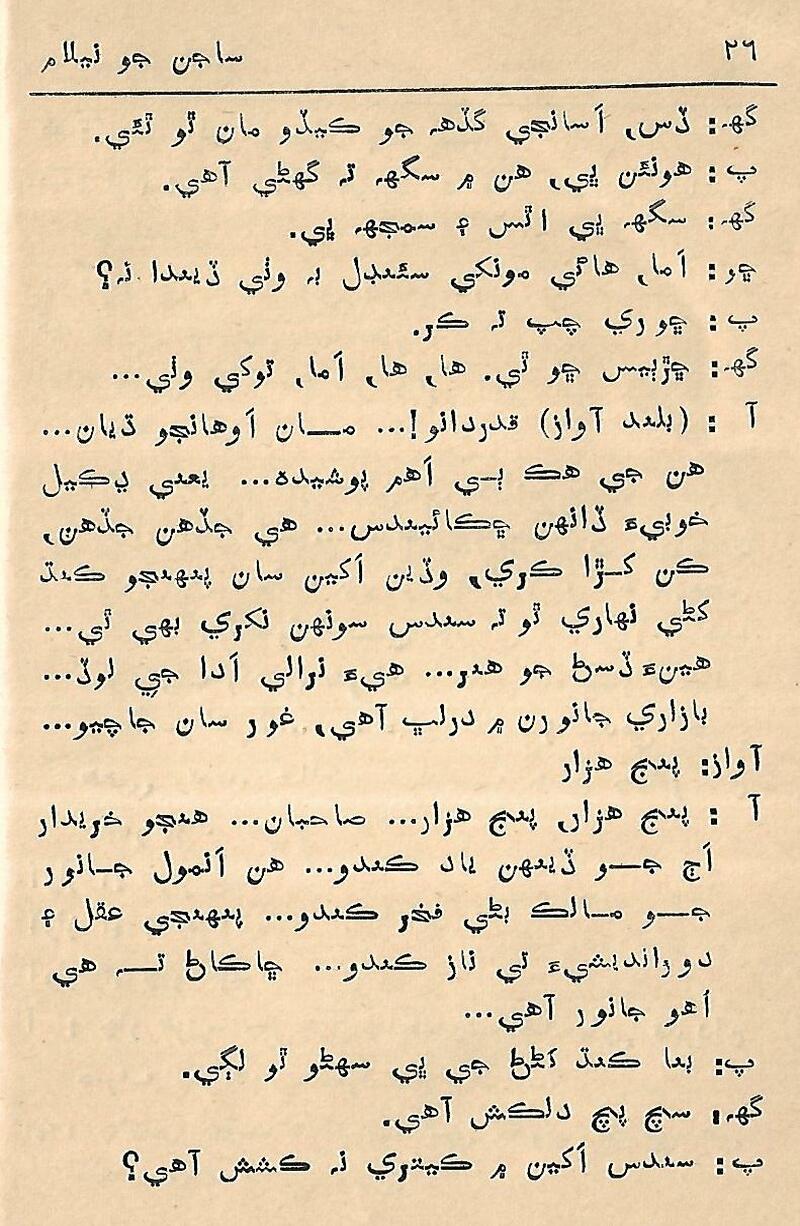 ٢٦ ساڄن جو نيلام
گهہ: ڏس، اَسانجي گڏهہ جو ڪيڏو مان ٿو ٿئي.
پ: هونئن ڀي، هن ۾ سگهہ تہ گهڻي آهي.
گهہ: سگهہ ڀي اٿس ۽ سمجهہ ڀي.
ڇو: اَما، هاڻي مونکي سئنڊل بہ وٺي ڏيندا نہ؟
پ: ڇوري چپ تہ ڪر.
گهہ: ڇڙٻيس ڇو ٿي. ها، ها، اَما، توکي وٺي...
آ: (بلند آواز) قدردانو!... مان اَوهانجو ڌيان...
هن جي هڪ ٻي اَهم پوشيده... يعني ڍڪيل
خوبيءَ ڏانهن ڇڪائيندس... هي جڏهن جڏهن،
ڪن کڙا ڪري، وڏين اَکين سان پنهنجو ڪنڌ
کڻي نهاري ٿو تہ سندس سونهن نکري ٻهي ٿي...
هينءَ ڏسڻ جو هنر... هيءَ نرالي اَدا جي لوڏ...
بازاري جانورن ۾ درلڀ آهي، غور سان جاچيو...
آواز: پنج هزار
آ: پنج هزار، پنج هزار... صاحبان... هنجو خريدار
اَڄ جو ڏينهن ياد ڪندو... هن اَنمول جانور
جو مالڪ بڻي فخر ڪندو... پنهنجي عقل ۽
دورانديشيءَ تي ناز ڪندو... ڇاڪاڻ تہ هي
اُهو جانور آهي...
پ: ٻنا ڪنڌ کڻڻ جي ڀي سهڻو ٿو لڳي.
گهہ: سچ پچ دلڪش آهي.
پ: سندس اَکين ۾ ڪيتري نہ ڪشش آهي؟